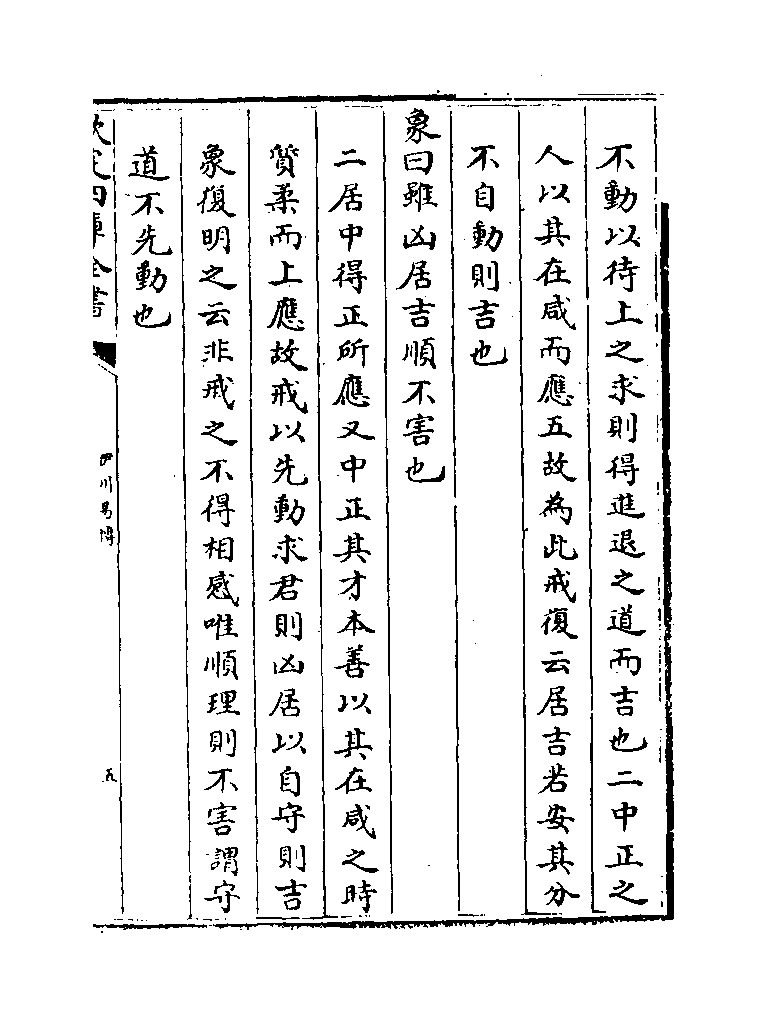 不動以待上之求則得進退之道而吉也二中正之
人以其在咸而應五故為此戒復云居吉若安其分
不自動則吉也
象曰雖凶居吉順不害也
二居中得正所應又中正其才本善以其在咸之時
質柔而上應故戒以先動求君則凶居以自守則吉
象復明之云非戒之不得相感唯順理則不害謂守
道不先動也
欽定四庫全書
伊川易傳
五